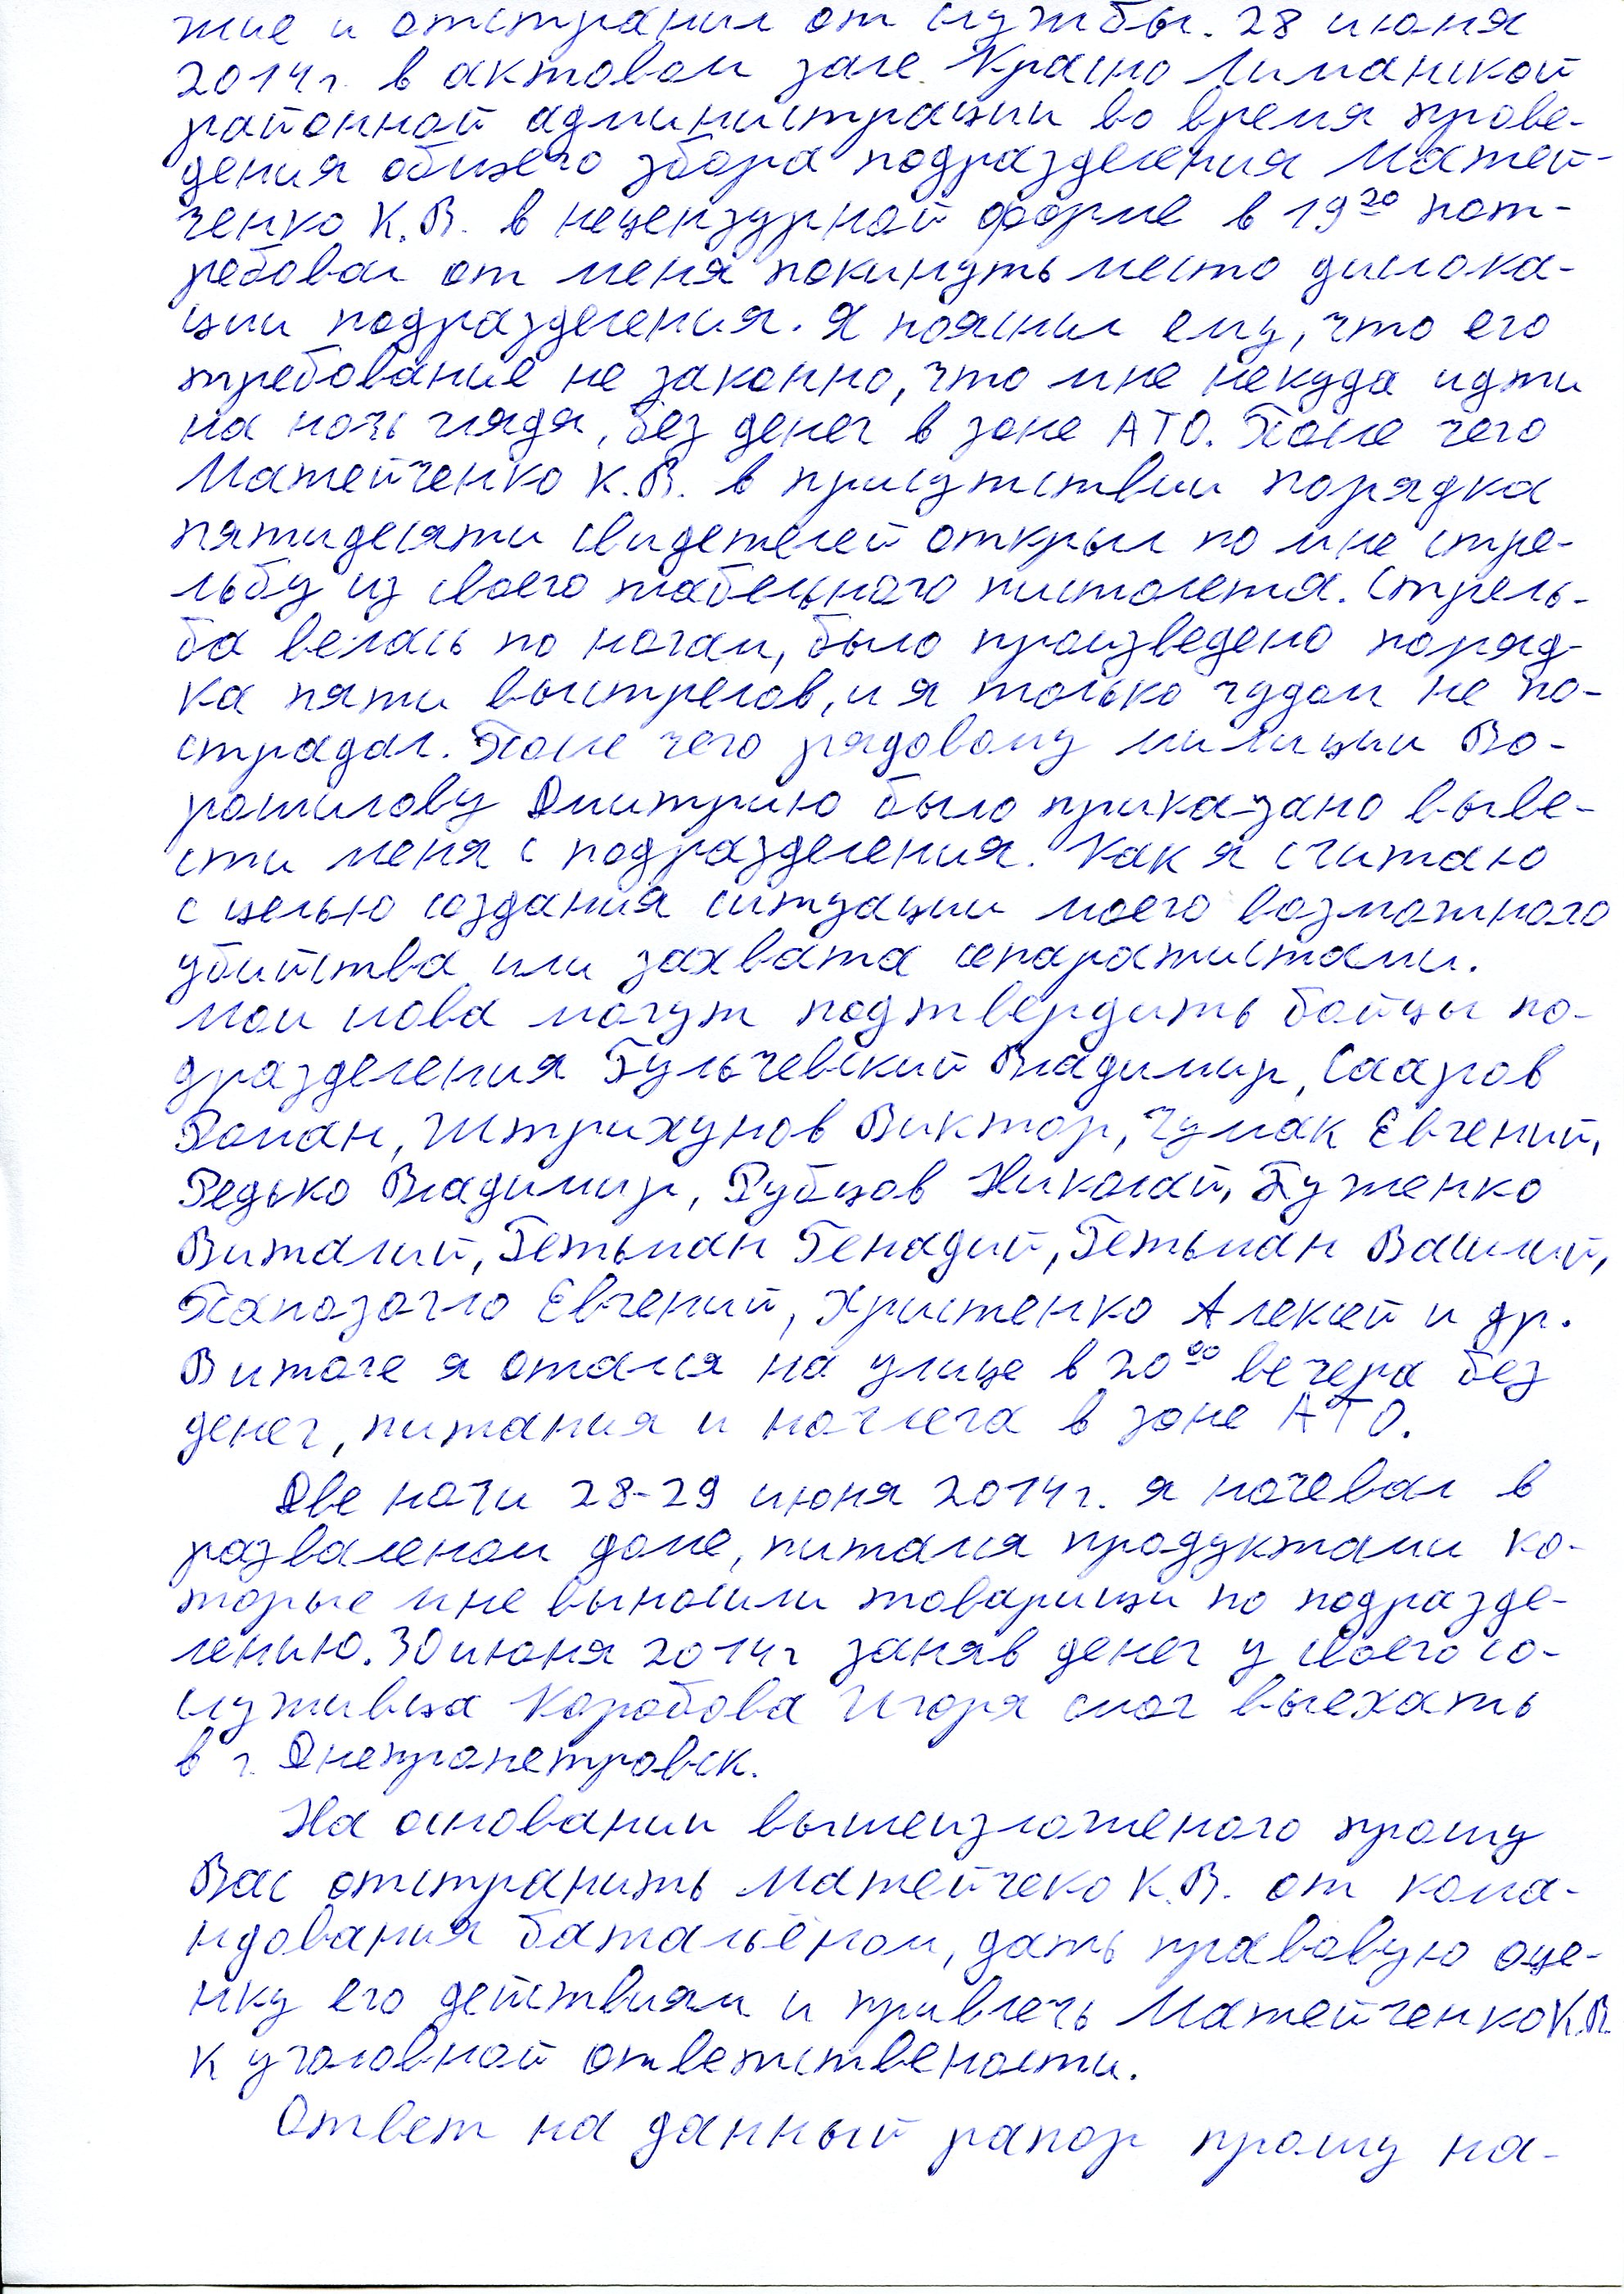 жие и отстранил от службы. 28 июня
2014г. в актовом зале Красно Лиманской
районной администрации во время прове-
дения общего збора подразделения Матей-
ченко К.В. в нецензурной форме в 19 20 пот-
ребовал от меня покинуть место дислока-
ции подразделения. Я пояснил ему, что его
требование не законно, что мне некуда идти
на ночь глядя, без денег в зоне АТО. После чего
Матейченко К.В. в присутствии порядка
пятидесяти свидетелей открыл по мне стре-
льбу из своего табельного пистолета. Стрель-
ба велась по ногам, было произведено поряд-
ка пяти выстрелов, и я только чудом не по-
страдал. После чего рядовому милиции Во-
рошилову Дмитрию было приказано выве-
сти меня с подразделения. Как я считаю
с целью создания ситуации моего возможного
убийства или захвата сепаратистами.
Мои слова могут подтвердить бойцы по-
дразделения Гульчевский Владимир, Сааров
Роман, Штрихунов Виктор, Чумак Евгений,
Редько Владимир, Рубцов Николай, Буженко
Виталий, Гетьман Генадий, Гетьман Василий,
Папазогло Евгений, Христенко Алексей и др.
В итоге я остался на улице в 20 00 вечера без
денег, питания и ночлега в зоне АТО.
Две ночи 28-29 июня 2014г. я ночевал в
разваленом доме, питался продуктами ко-
торые мне выносили товарищи по подразде-
лению. 30 июня 2014г заняв денег у своего со-
служивца Коробова Игоря смог выехать
в г. Днепропетровск.
На основании вышеизложеного прошу
Вас отстранить Матейчеко К.В. от кома-
ндования батальёном, дать правовую оце-
нку его действиям и привлечь Матейченко К.В.
к уголовной ответствености.
Ответ на данный рапор прошу на-